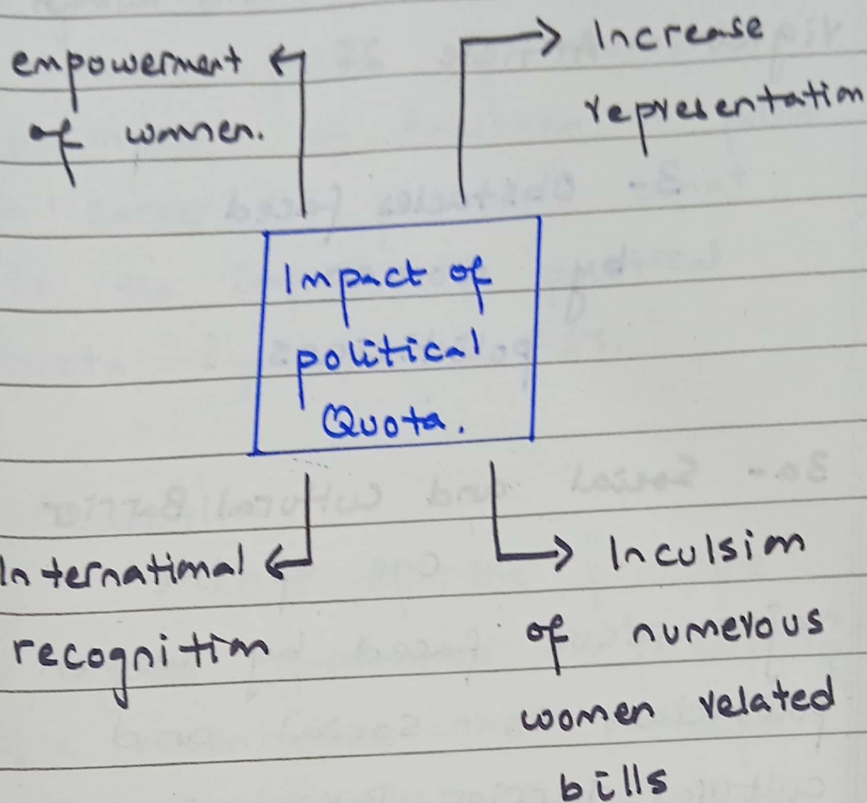 empowerment
of women.
Increase
representation
Impact of
political
Quota.
International
recognition
Inculsion
of numerous
women related
bills